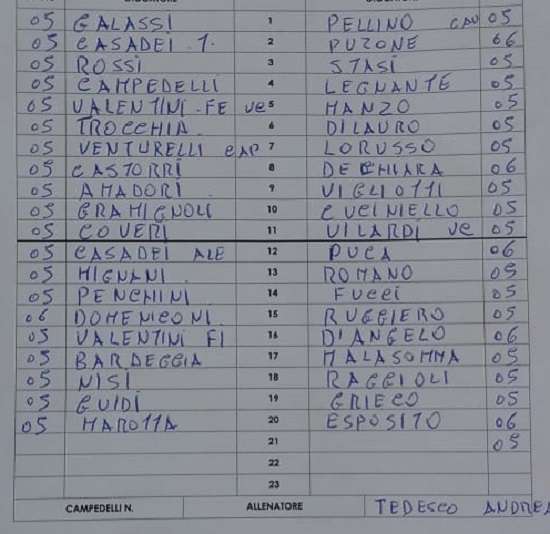 05 GALASSI 1 PELLINO CAP 05
05 CASADEI T. 2 PUZONE 06
05 ROSSI 3 STASI 05
05 CAMPEDELLI 4 LEGNANTE 05
05 VALENTINI FE VC 5 MANZO 05
05 TROCCHIA 6 DILAURO 05
05 VENTURELLI CAP 7 LORUSSO 05
05 CASTORRI 8 DECHIARA 06
05 AMADORI 9 VIGLIOTTI 05
05 GRAMIGNOLI 10 CUCINIELLO 05
05 COVERI 11 VILARDI VC 05
05 CASADEI ALE 12 PUCA 06
05 MIGNANI 13 ROMANO 05
05 PENCHINI 14 FUCCI 05
06 DOMENICONI 15 RUGGIERO 05
05 VALENTINI FI 16 D'ANGELO 06
05 BARDEGGIA 17 MALASOMMA 05
05 NISI 18 RAGGIOLI 05
05 GUIDI 19 GRIECO 05
05 MAROTTA 20 ESPOSITO 06
21 05
22
23
CAMPEDELLI N. ALLENATORE TEDESCO ANDREA